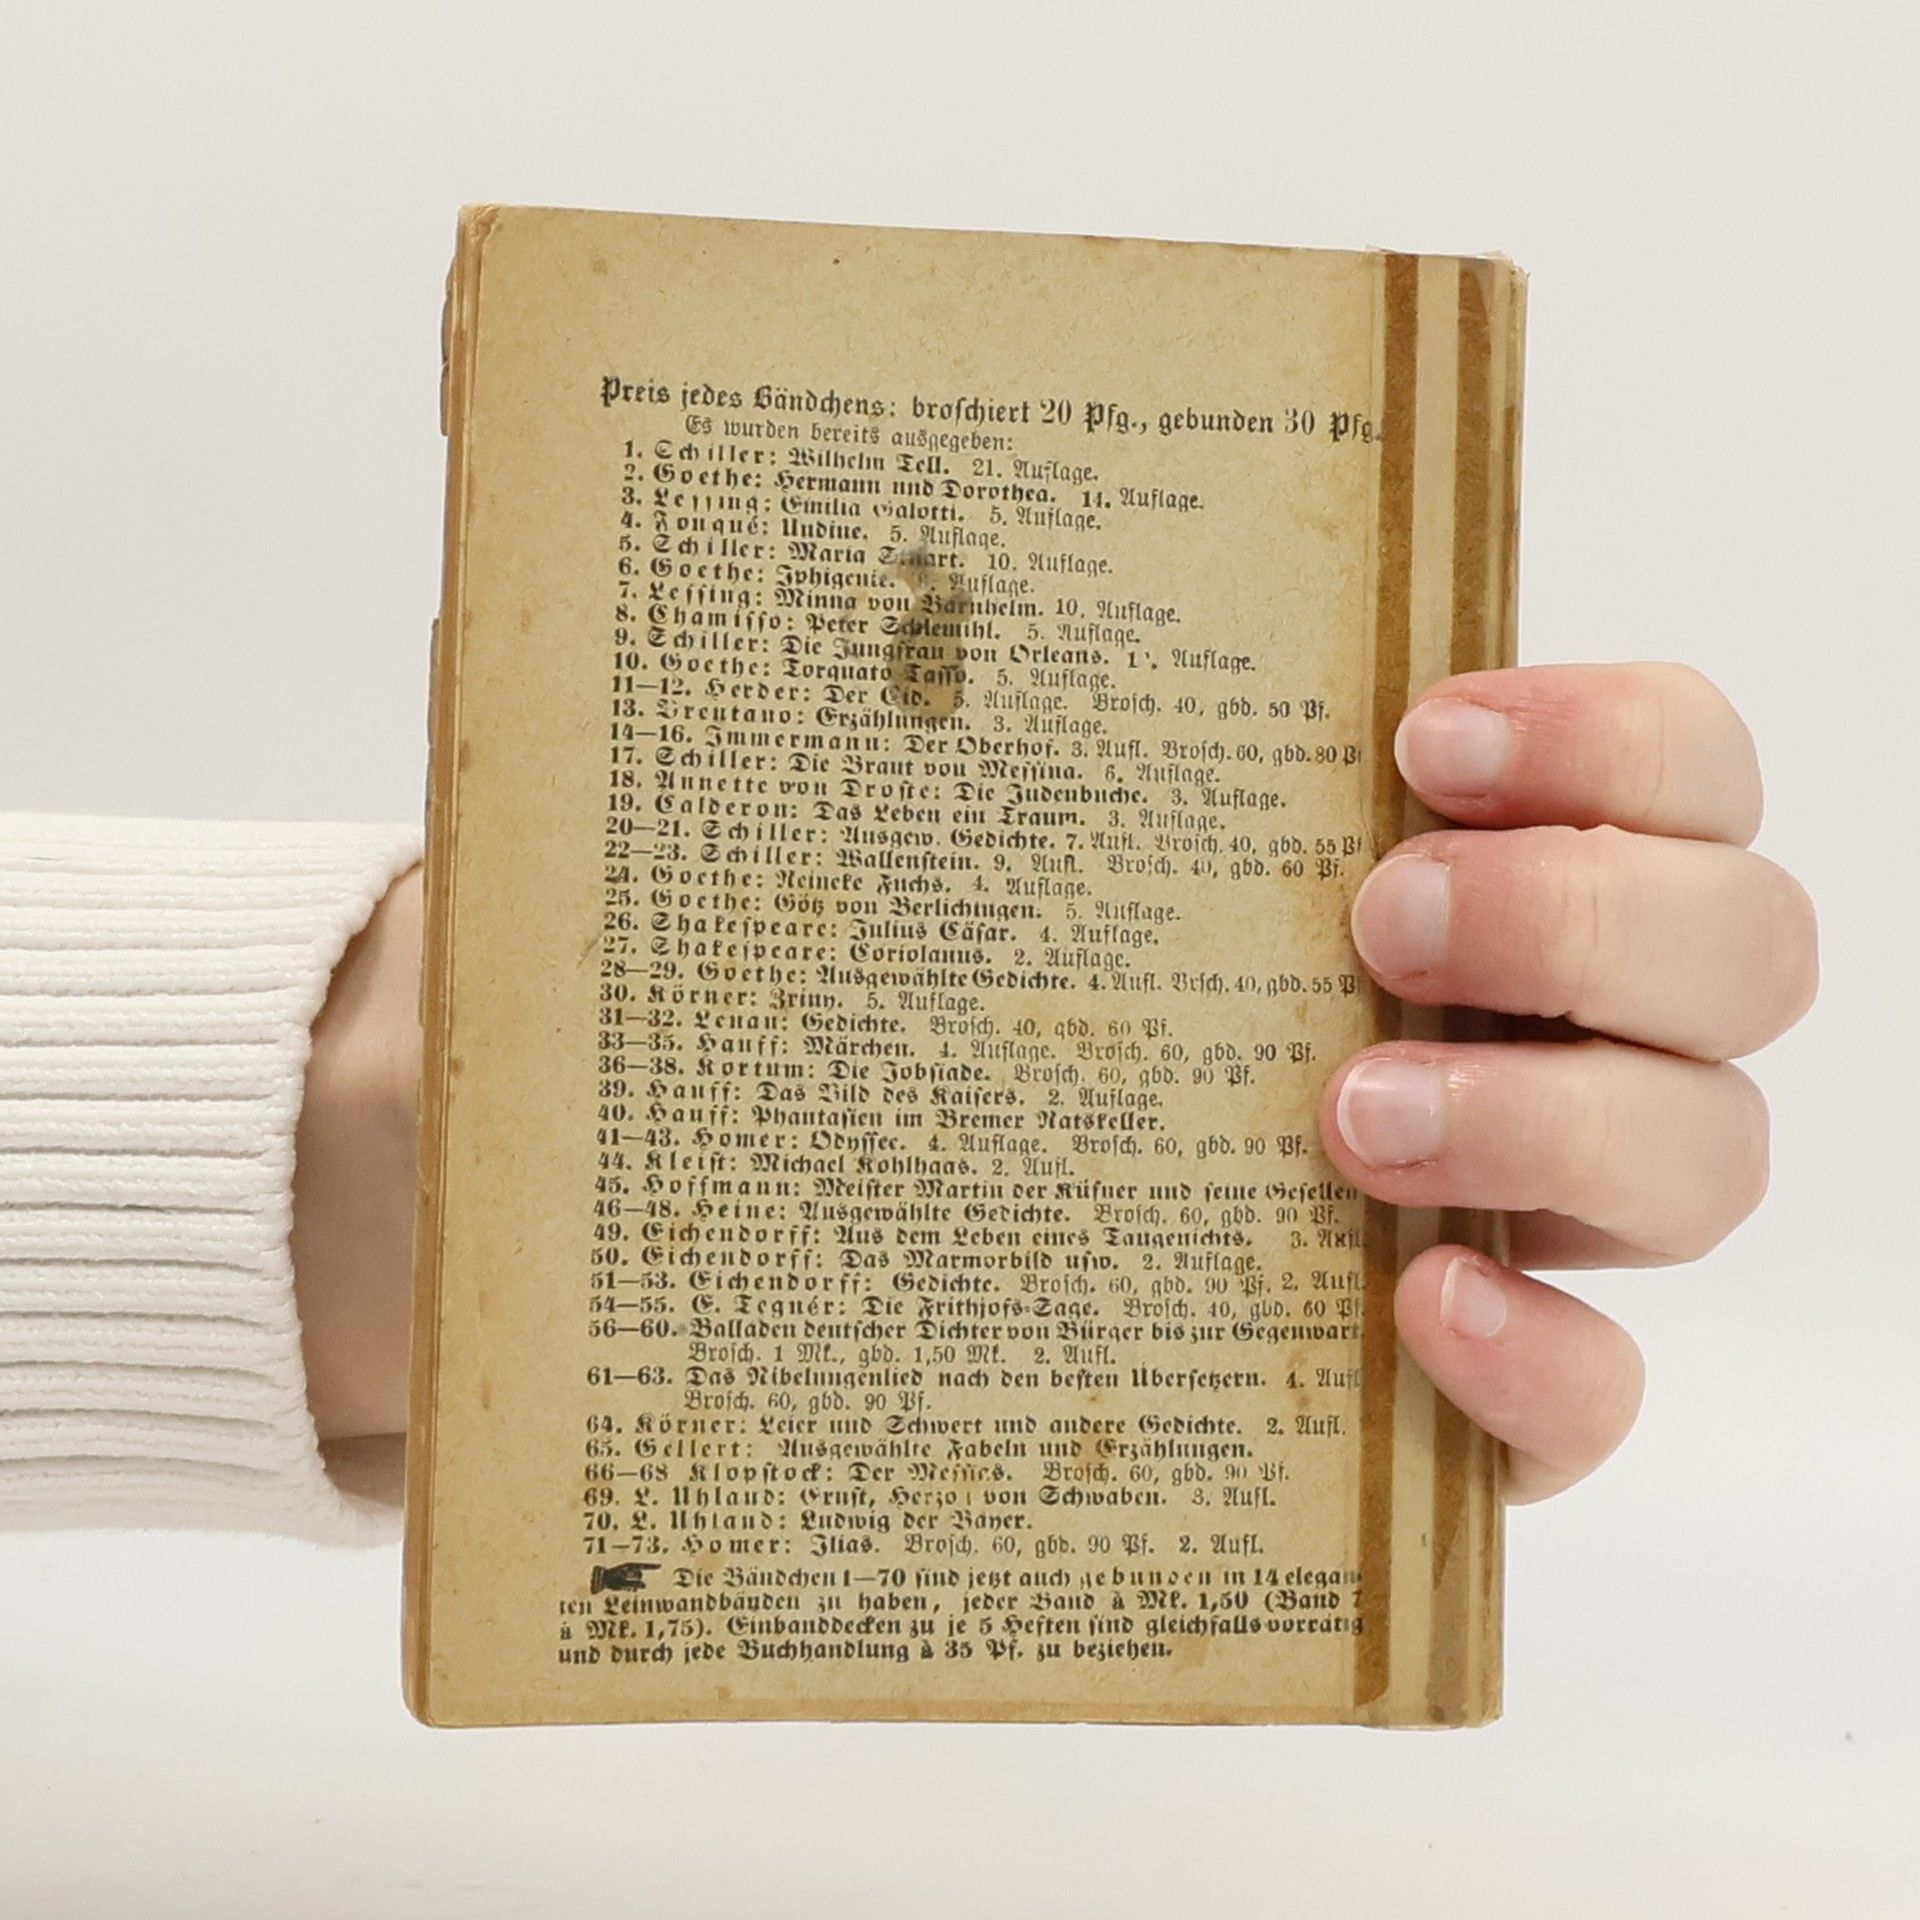 Preis jedes Bändchens: broschiert 20 Pfg., gebunden 30 Pfg.
Es wurden bereits ausgegeben:
1. Schiller: Wilhelm Tell. 21. Auflage.
2. Goethe: Hermann und Dorothea. 14. Auflage.
3. Lessing: Emilia Galotti. 5. Auflage.
4. Fouqué: Undine. 5. Auflage.
5. Schiller: Maria Stuart. 10. Auflage.
6. Goethe: Iphigenie. Auflage.
7. Lessing: Minna von Barnhelm. 10. Auflage.
8. Chamisso: Peter Schlemihl. 5. Auflage.
9. Schiller: Die Jungfrau von Orleans. Auflage.
10. Goethe: Torquato Tasso. 5. Auflage.
11—12. Herder: Der Cid. 5. Auflage. Brosch. 40, gbd. 50 Pf.
13. Brentano: Erzählungen. 3. Auflage.
14—16. Immermann: Der Oberhof. 3. Aufl. Brosch. 60, gbd. 80 Pf
17. Schiller: Die Braut von Messina. 6. Auflage.
18. Annette von Droste: Die Judenbuche. 3. Auflage.
19. Calderon: Das Leben ein Traum. 3. Auflage.
20—21. Schiller: Ausgew. Gedichte. 7. Aufl. Brosch. 40, gbd. 55 Pf
22—23. Schiller: Wallenstein. 9. Aufl. Brosch. 40, gbd. 60 Pf.
24. Goethe: Reineke Fuchs. 4. Auflage.
25. Goethe: Götz von Berlichingen. 5. Auflage.
26. Shakespeare: Julius Cäsar. 4. Auflage.
27. Shakespeare: Coriolanus. 2. Auflage.
28—29. Goethe: Ausgewählte Gedichte. 4. Aufl. Brsch. 40, gbd. 55 P
30. Körner: Zriny. 5. Auflage.
31—32. Lenau: Gedichte. Brosch. 40, gbd. 60 Pf.
33—35. Hauff: Märchen. 4. Auflage. Brosch. 60, gbd. 90 Pf.
36—38. Kortum: Die Jobsiade. Brosch. 60, gbd. 90 Pf.
39. Hauff: Das Bild des Kaisers. 2. Auflage.
40. Hauff: Phantasien im Bremer Ratskeller.
41—43. Homer: Odyssee. 4. Auflage. Brosch. 60, gbd. 90 Pf.
44. Kleist: Michael Kohlhaas. 2. Aufl.
45. Hoffmann: Meister Martin der Küfner und seine Gesellen
46—48. Heine: Ausgewählte Gedichte. Brosch. 60, gbd. 90 Pf.
49. Eichendorff: Aus dem Leben eines Taugenichts. 3. Aufl
50. Eichendorff: Das Marmorbild usw. 2. Auflage.
51—53. Eichendorff: Gedichte. Brosch. 60, gbd. 90 Pf. 2. Aufl.
54—55. E. Tegnér: Die Frithjofs-Sage. Brosch. 40, gbd. 60 Pf.
56—60. Balladen deutscher Dichter von Bürger bis zur Gegenwart.
Brosch. 1 Mk., gbd. 1,50 Mk. 2. Aufl.
61—63. Das Nibelungenlied nach den besten Übersetzern. 4. Aufl
Brosch. 60, gbd. 90 Pf.
64. Körner: Leier und Schwert und andere Gedichte. 2. Aufl.
65. Gellert: Ausgewählte Fabeln und Erzählungen.
66—68 Klopstock: Der Messias. Brosch. 60, gbd. 90 Pf.
69. L. Uhland: Ernst, Herzog von Schwaben. 3. Aufl.
70. L. Uhland: Ludwig der Bayer.
71—73. Homer: Ilias. Brosch. 60, gbd. 90 Pf. 2. Aufl.
Die Bändchen 1—70 sind jetzt auch gebunden in 14 elegan
ten Leinwandbänden zu haben, jeder Band à Mk. 1,50 (Band 7
à Mk. 1,75). Einbanddecken zu je 5 Heften sind gleichfalls vorrätig
und durch jede Buchhandlung à 35 Pf. zu beziehen.